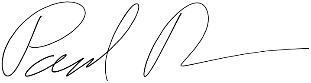 Paul R